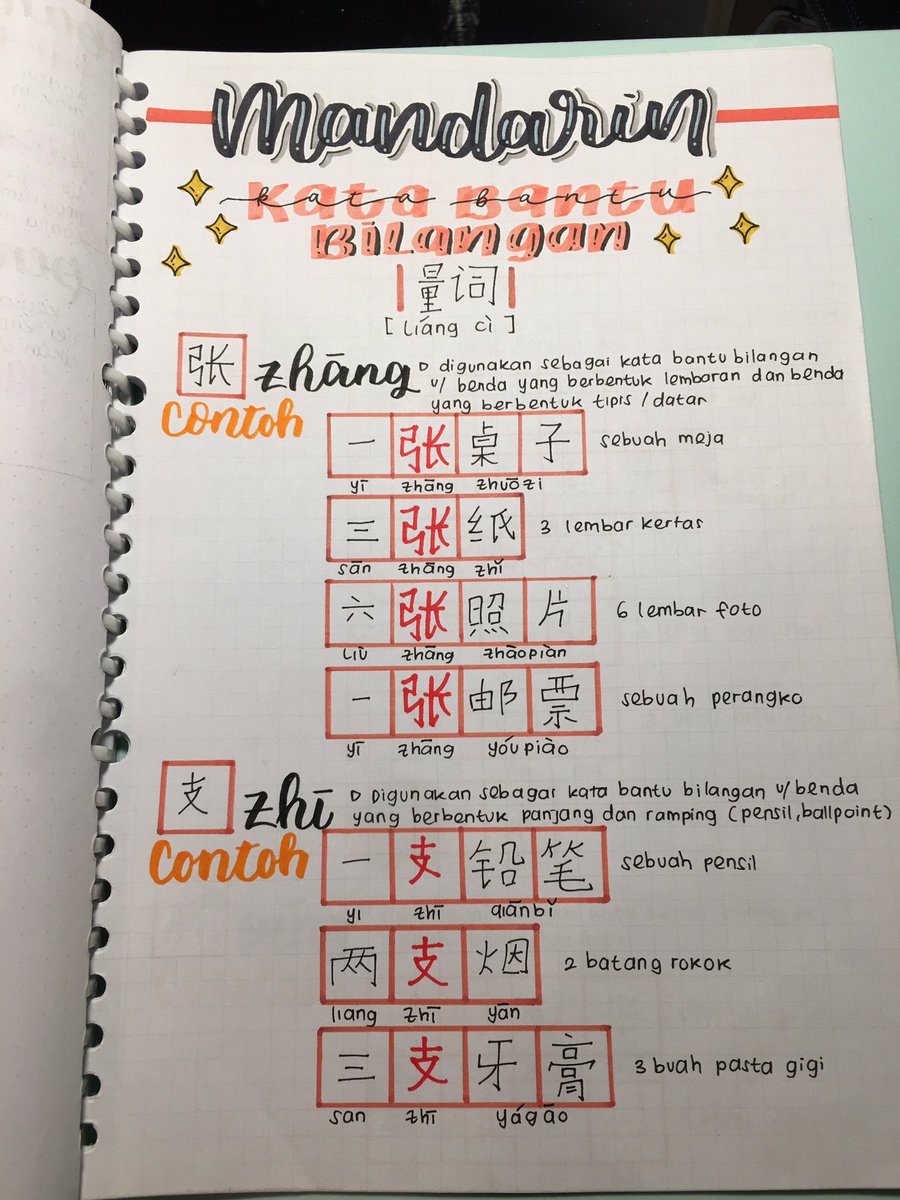 Mandarin
Kata Bantu
Bilangan
量词
[ liáng cì ]
张 zhāng ▷ digunakan sebagai kata bantu bilangan
u/ benda yang berbentuk lembaran dan benda
yang berbentuk tipis / datar
Contoh
一 张 桌 子 sebuah meja
yī zhāng zhuōzi
三 张 纸 3 lembar kertas
sān zhāng zhǐ
六 张 照 片 6 lembar foto
liù zhāng zhàopiàn
一 张 邮 票 sebuah perangko
yī zhāng yóupiào
支 zhī ▷ Digunakan sebagai kata bantu bilangan u/benda
yang berbentuk panjang dan ramping (pensil,ballpoint)
Contoh
一 支 铅 笔 sebuah pensil
yi zhī qiānbǐ
两 支 烟 2 batang rokok
liang zhī yān
三 支 牙 膏 3 buah pasta gigi
san zhī yágāo